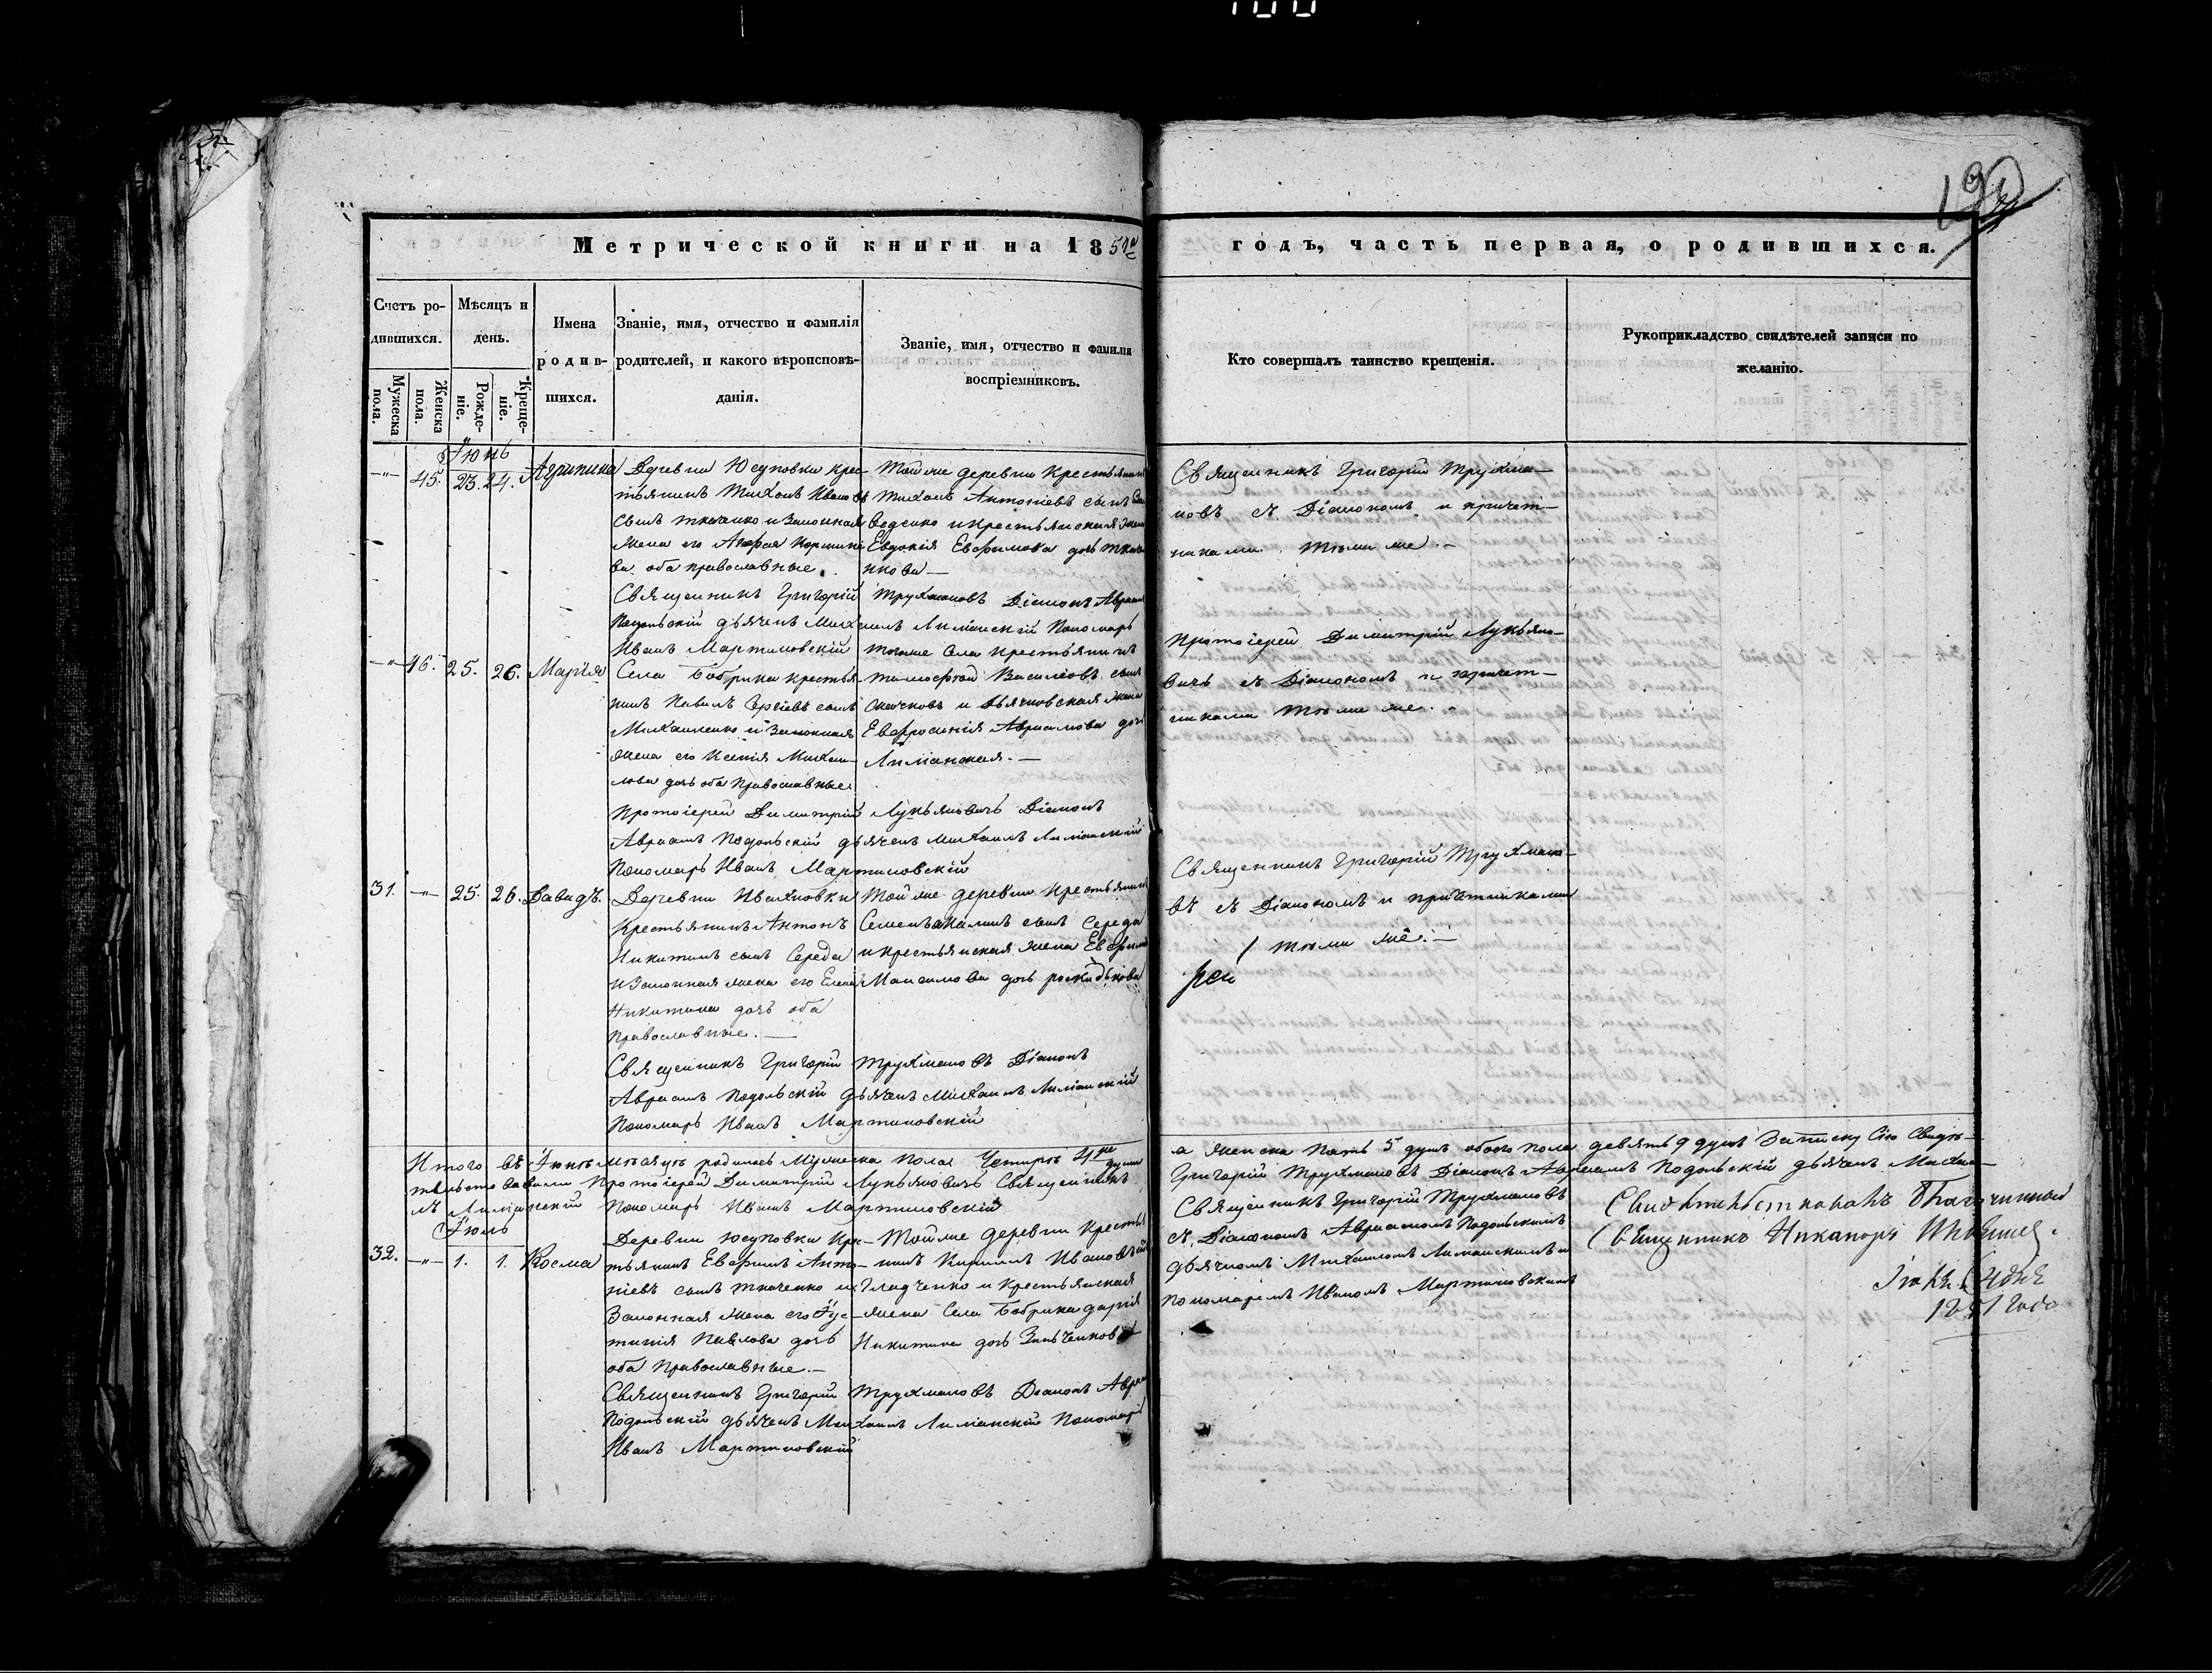 100
190
Метрической книги на 1851й
годъ, часть первая, о родившихся.
Счетъ родившихся.
Мужеска пола.
Женска пола.
Мѣсяцъ и день.
Рожденіе.
Крещеніе.
Имена родившихся.
Званіе, имя, отчество и фамилія родителей, и какого вѣроисповѣданія.
Званіе, имя, отчество и фамилія воспріемниковъ.
Кто совершалъ таинство крещенія.
Рукоприкладство свидѣтелей записи по желанію.
Іюнь
45. 23. 24. Агрипина
Деревни Юсуповки крес-
тьянинъ Тихонъ Ивановъ
сынъ Ткаченко и законная
жена его
ва оба православные.
Той же деревни крестьянинъ
Тихонъ Антоніевъ сынъ
и крестьянская жена
Евдокія Евфимова дочь Ткаче-
нкова —
Священникъ Григорій Трухма-
новъ съ Діакономъ и причет-
никами тѣми же. —
Священникъ Григорій Трухмановъ Діаконъ Авраамъ
Подольскій дьячекъ Михаилъ Лиманскій Пономарь
Иванъ Мартиновскій
46. 25. 26. Марія
Села Бобрика крестья-
нинъ Павелъ Сергіевъ сынъ
Михаиленко и законная
жена его Ксенія Михаи-
лова дочь оба православные
тогоже села крестьянинъ
Тимофей Василіевъ сынъ
и дьячковская жена
Евфросинія Авраамова дочь
Лиманская. —
Протоіерей Димитрій Лукьяно-
вичь съ Діакономъ и причет-
никами тѣми же.
Протоіерей Димитрій Лукьяновичь Діаконъ
Авраамъ Подольскій дьячекъ Михаилъ Лиманскій
Пономарь Иванъ Мартиновскій
31. 25. 26. Давидъ.
Деревни Ивахновки
крестьянинъ Антонъ
Никитинъ сынъ Середа
и законная жена его Елена
Никитина дочь оба
православные. —
Той же деревни крестьянинъ
Семенъ сынъ Середа
и крестьянская жена Евфимія
Максимова дочь
Священникъ Григорій Трухмано-
въ съ Діакономъ и причетниками
тѣми же. —
рей
Священникъ Григорій Трухмановъ Діаконъ
Авраамъ Подольскій дьячекъ Михаилъ Лиманскій
Пономарь Иванъ Мартиновскій
Итого въ Іюнѣ мѣсяцѣ родилось Мужеска пола Четыре 4ре души
а женска пять 5 душъ обоего пола девять 9 душъ Записку сію свидѣ-
тельствовали Протоіерей Димитрій Лукьяновичь Священникъ
Григорій Трухмановъ Діаконъ Авраамъ Подольскій дьячекъ Михаи-
лъ Лиманскій Пономарь Иванъ Мартиновскій
Іюль
32. 1. 1. Косма
Деревни Юсуповки Крес-
тьянинъ Евфимъ Анто-
ніевъ сынъ Ткаченко и
Законная жена его Іус-
тинія Павлова дочь
оба православные. —
Той же деревни Кресть-
нинъ Кириллъ Ивановъ
Гладченко и крестьянская
жена Села Бобрика Дарія
Никитина дочь Зинченкова
Священникъ Григорій Трухмановъ
съ Діакономъ Авраамомъ Подольскимъ
дьячкомъ Михаиломъ Лиманскимъ и
пономаремъ Иваномъ Мартиновскимъ
Священникъ Григорій Трухмановъ Діаконъ Авраамъ
Подольскій дьячекъ Михаилъ Лиманскій Пономарь
Иванъ Мартиновскій
Свидѣтельствовалъ Благочинный
Священникъ Никаноръ
1851 года